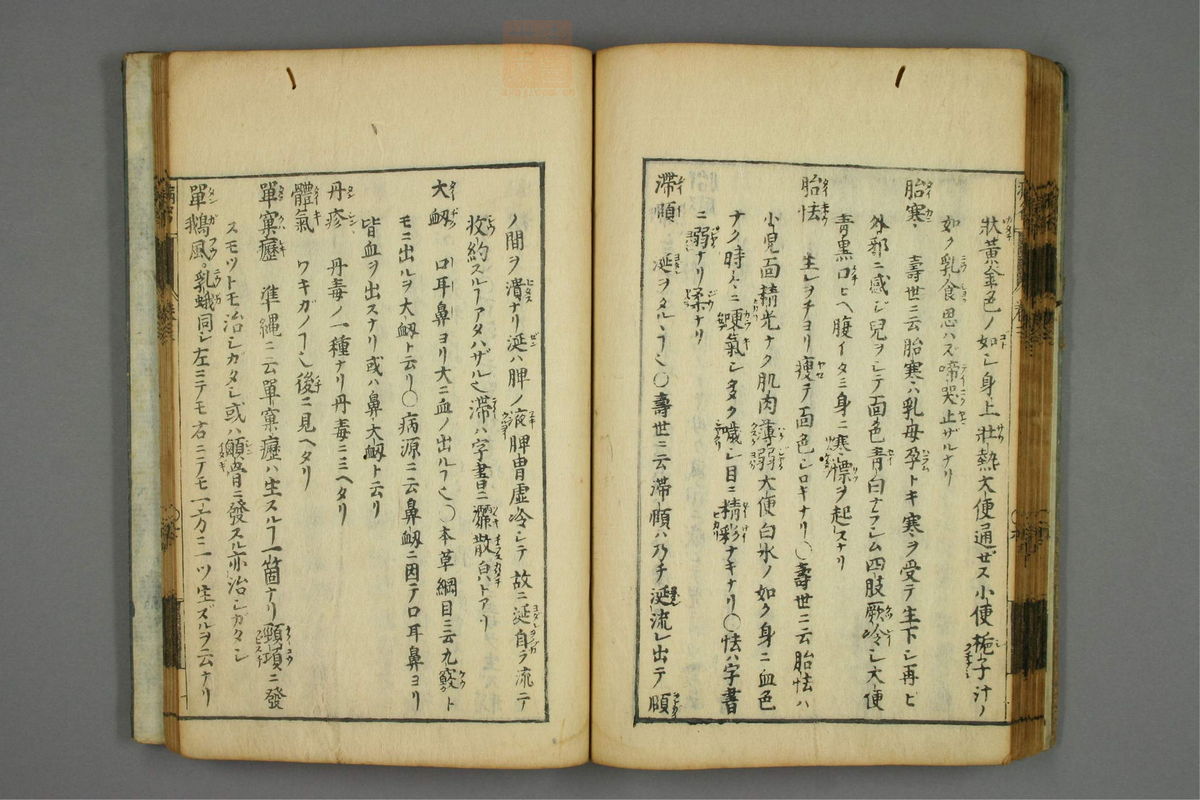 狀黃金色ノ如シ身上壯熱大便通ゼス小便梔子汁ノ
如ク乳食思ハス啼哭止ザルナリ
胎寒 壽世ニ云胎寒ハ乳母孕トキ寒ヲ受テ生下シ再ヒ
外邪ニ感ジ兒ヲシテ面色青白ナラシム四肢厥冷シ大便
青黒口ヒヘ腹イタミ身ニ寒慄ヲ起スナリ
胎怯 生レヲチヨリ瘦テ面色シロキナリ○壽世ニ云胎怯ハ
小兒面精光ナク肌肉薄弱大便白水ノ如ク身ニ血色
ナク時々ニ哽氣シ多ク噦シ目ニ精彩ナキナリ○怯ハ字書
ニ弱ナリ柔ナリ
滞頤 涎ヲタルヽヿ也○壽世ニ云滞頤ハ乃チ涎流レ出テ頤
ノ間ヲ漬ナリ涎ハ脾ノ液脾胃虚冷シテ故ニ涎自ラ流テ
收約スルヿアタハザル也滞ハ字書ニ凘散皃トアリ
大衂 口耳鼻ヨリ大ニ血ノ出ルヿ也○本草綱目ニ云九竅ト
モニ出ルヲ大衂ト云リ○病源ニ云鼻衂ニ因テ口耳鼻ヨリ
皆血ヲ出スナリ或ハ鼻大衂ト云リ
丹疹 丹毒ノ一種ナリ丹毒ニミヘタリ
體氣 ワキガノヿ也後ニ見ヘタリ
單窠癧 準縄ニ云單窠癧ハ生スルヿ一箇ナリ頸項ニ發
スモツトモ治シガタシ或ハ顋會ニ發スル亦治シガタシ
單鵝風 乳蛾同シ左ニテモ右ニテモ一方ニ一ツ生ズルヲ云ナリ